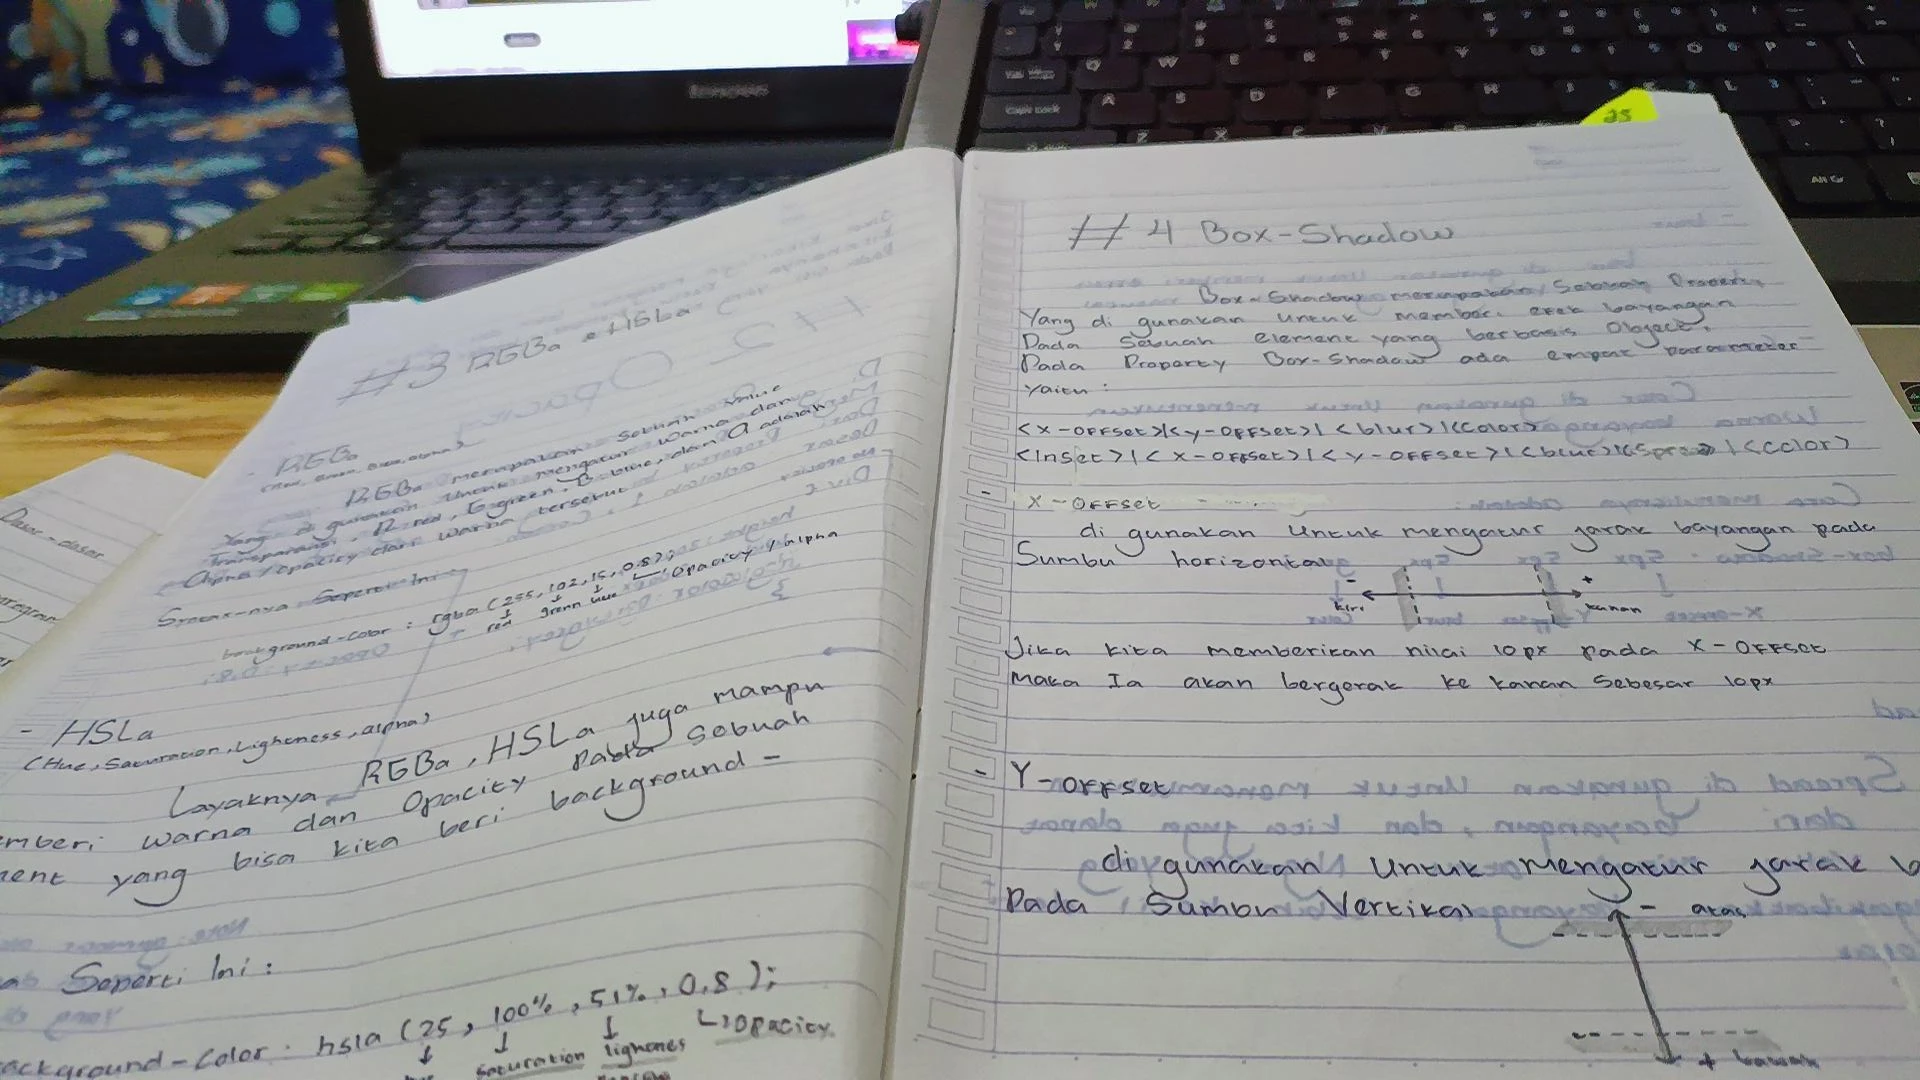 #3 RGBa & HSLa
- RGBa
(Red, Green, Blue, alpha)
RGBa merupakan sebuah value
Yang di gunakan untuk mengatur warna dan
Transparansi, R red, G green, B blue, dan a adalah
Alpha / opacity dari warna tersebut
Seperti Ini
background-color : rgba (255, 102, 15, 0.8);
red green blue opacity / alpha
- HSLa
(Hue, Saturation, Lightness, alpha)
Layaknya RGBa, HSLa juga mampu
emberi warna dan Opacity Pada Sebuah
ment yang bisa kita beri background -
Seperti Ini :
ackground-Color : hsla (25, 100%, 51%, 0.8);
Saturation lighnes Opacity
25
#4 Box-Shadow
Box-Shadow merupakan Sebuah Property
Yang di gunakan untuk memberi efek bayangan
Pada Sebuah element yang berbasis Object.
Pada Property Box-Shadow ada empat parameter
Yaitu :
<x-OFFset>|<y-OFFset>| <blur>|<Color>
<Inset>| < x-OFFset>| < y-OFFset>|<blur>|<Spread>|<Color>
- X-OFFset
di gunakan Untuk mengatur jarak bayangan pada
Sumbu horizontal
- +
kiri kanan
Jika kita memberikan nilai 10px pada X-OFFset
Maka Ia akan bergerak ke kanan Sebesar 10px
- Y-OFFset
di gunakan Untuk mengatur jarak b
Pada Sumbu Vertikal
- atas
+ bawah
Dasar-dasar
lenovo